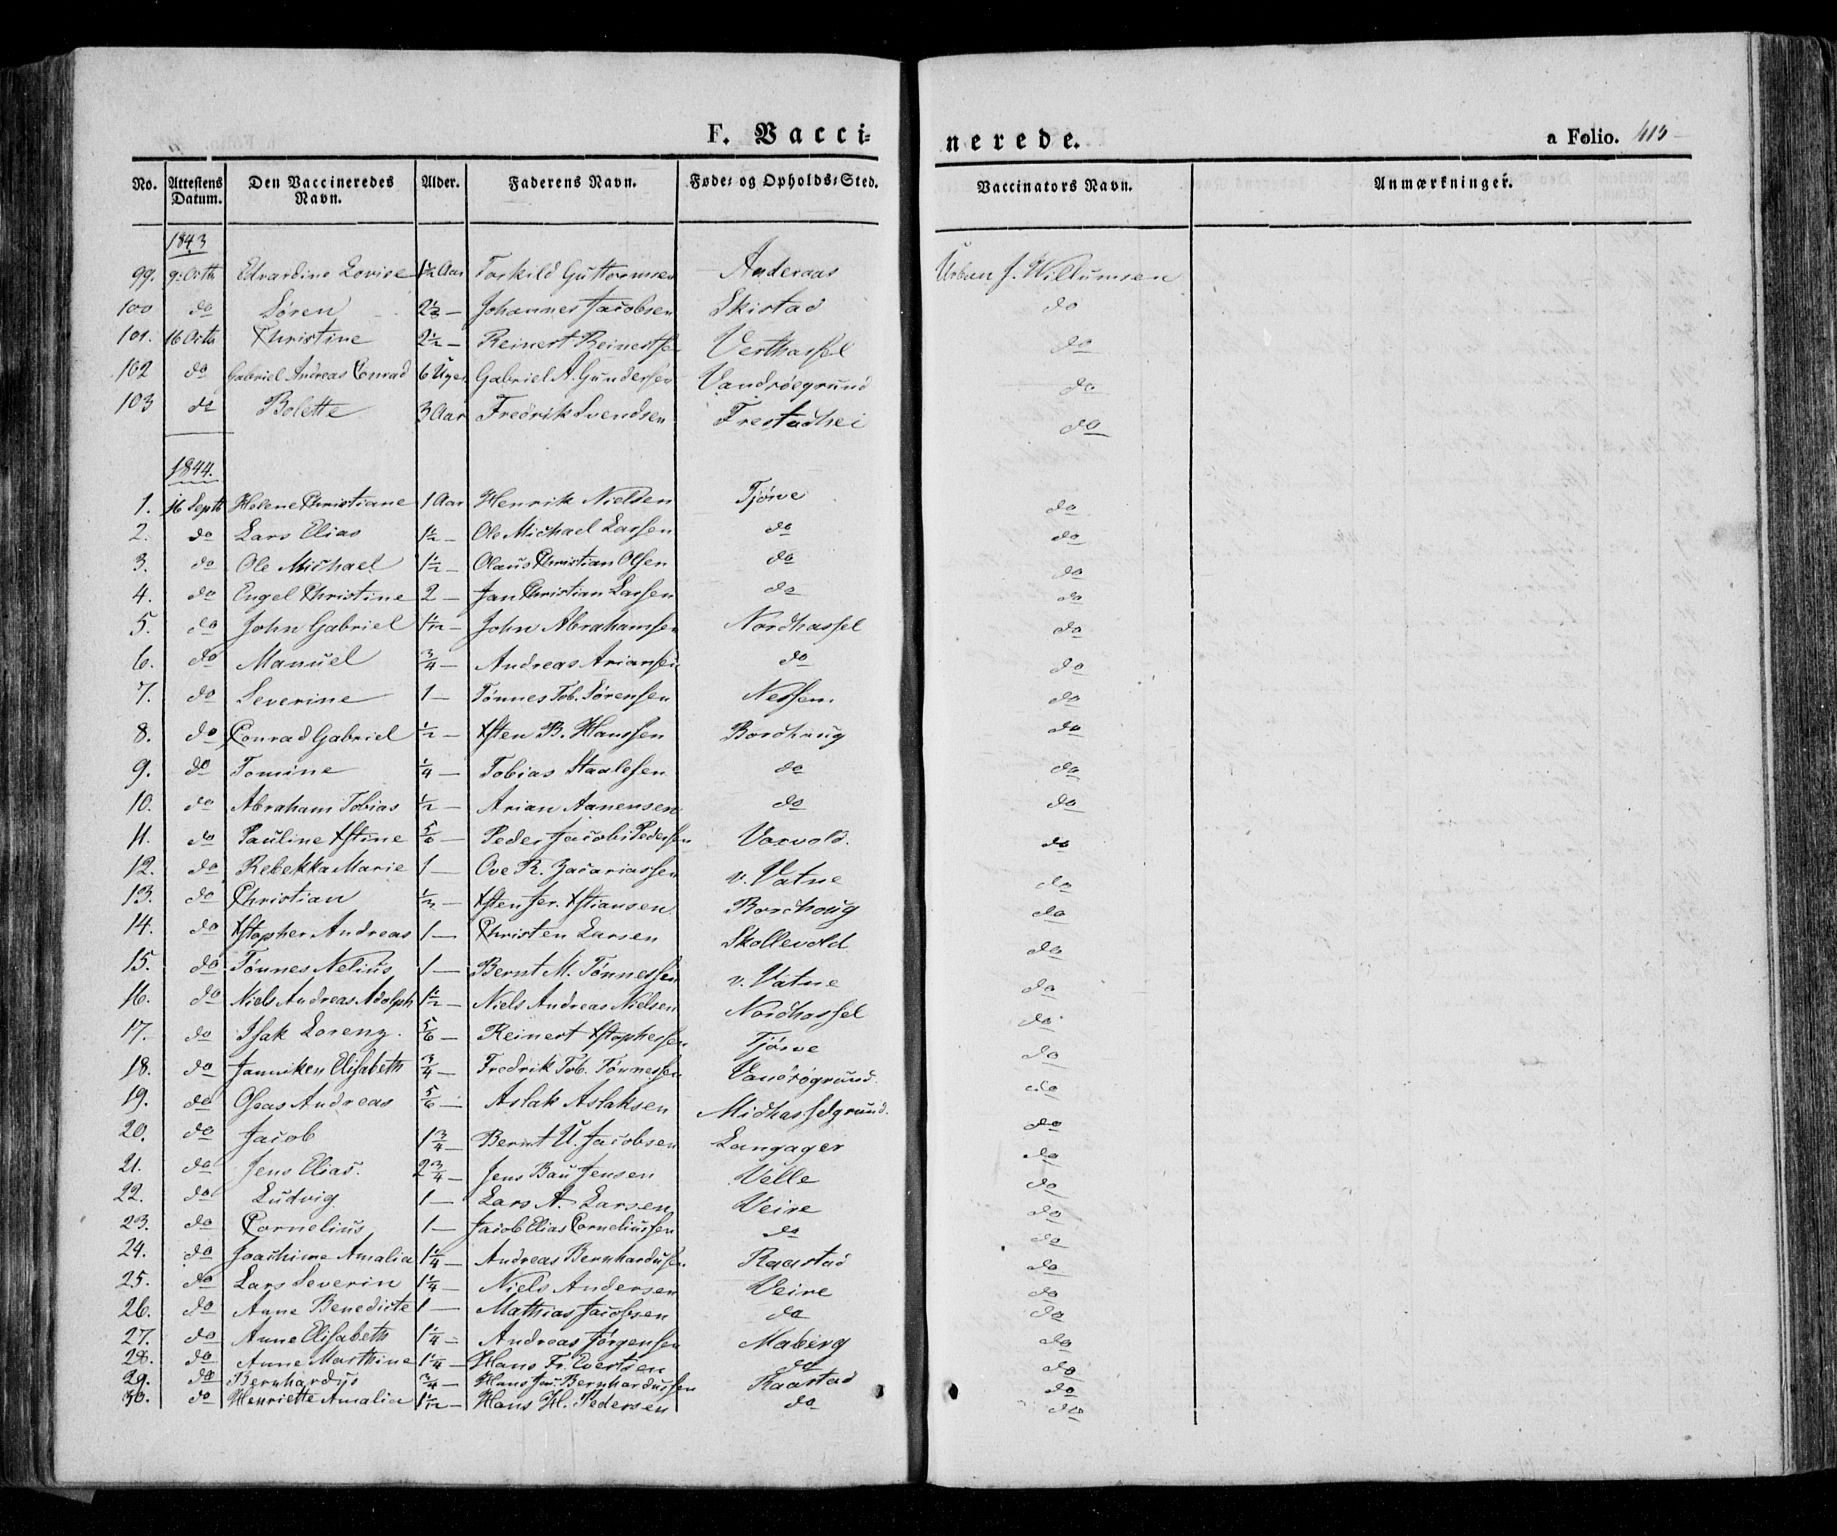 F. Vaccinerede.
a Folio. 413
No. Attestens Datum. Den Vaccineredes Navn. Alder. Faderens Navn. Føde- og Opholds-Sted. Vaccinators Navn. Anmærkninger.
1843
99. 9. Octb Edvardine Lovise 1½ Aar Torkild Guttormsen Anderaas Urban J. Willumsen
100 do Søren 2½ — Johannes Jacobsen Skistad do
101. 16 Octb Christine 2½ — Reinert Reinertsen Verthassel do
102 do Gabriel Andreas Conrad 6 Uger Gabriel A. Gundersen Vandrøegrund do
103 do Bolette 3 Aar Fredrik Svendsen Frestadhei do
1844.
1. 16 Septb Helene Christiane 1 Aar Henrik Nielsen Tjörve do
2. do Lars Elias 1½ — Ole Michael Larssen do do
3. do Ole Michael 1½ — Olaus Christian Olsen do do
4. do Engel Christine 2 — Jan Christian Larssen do do
5. do John Gabriel 1 1/12 — John Abrahamsen Nordhassel do
6. do Manuel ¾ — Andreas Ariansen do do
7. do Severine 1 — Tønnes Tob. Sørensen Nessem. do
8. do Conrad Gabriel ½ — Xsten B. Hanssen Bordhaug do
9. do Tomine ¼ — Tobias Staalesen do do
10. do Abraham Tobias ½ — Arian Aanensen do do
11. do Pauline Xstine 5/6 — Peder Jacobs Pedersen Vorvold. do
12. do Rebekka Marie 1 — Ove R. Zacariassen v. Vatne do
13. do Christian ½ — Xsten Jer. Xstiansen Bordhoug do
14. do Xstopher Andreas 1 — Christen Larsen Skollevold do
15. do Tönnes Nelius 1 — Bernt M. Tönnessen v. Vatne do
16. do Niels Andreas Adolph 1½ — Niels Andreas Nielsen Nordhassel do
17. do Isak Lorenz. 5/6 — Reinert Xstophersen Tjörve do
18. do Janniken Elisabeth ¾ — Fredrik Tob. Tönnessen Vandrøgrund. do
19. do Oseas Andreas 5/6 — Aslak Aslaksen Midhasselgrund. do
20. do Jacob 1¾ — Bernt U. Jacobsen Langager do
21. do Jens Elias. 2¾ — Jens Bau Jensen Velle do
22. do Ludvig 1 — Lars A. Larsen Veire do
23. do Cornelius 1 — Jacob Elias Corneliussen do do
24. do Joachime Amalia 1¼ — Andreas Bernhardusen Raastad do
25. do Lars Severin 1¼ — Niels Andersen Veire do
26. do Anne Benedicte 1 — Mathias Jacobsen do do
27. do Anne Elisabeth 1¼ — Andreas Jørgensen Maberg do
28. do Anne Marthine 1¼ — Hans Fr. Evertsen do do
29. do Bernhardus ¾ — Hans Jac. Bernhardussen Raastad do
30. do Henriette Amalia 1 1/12 — Hans H. Pedersen do do